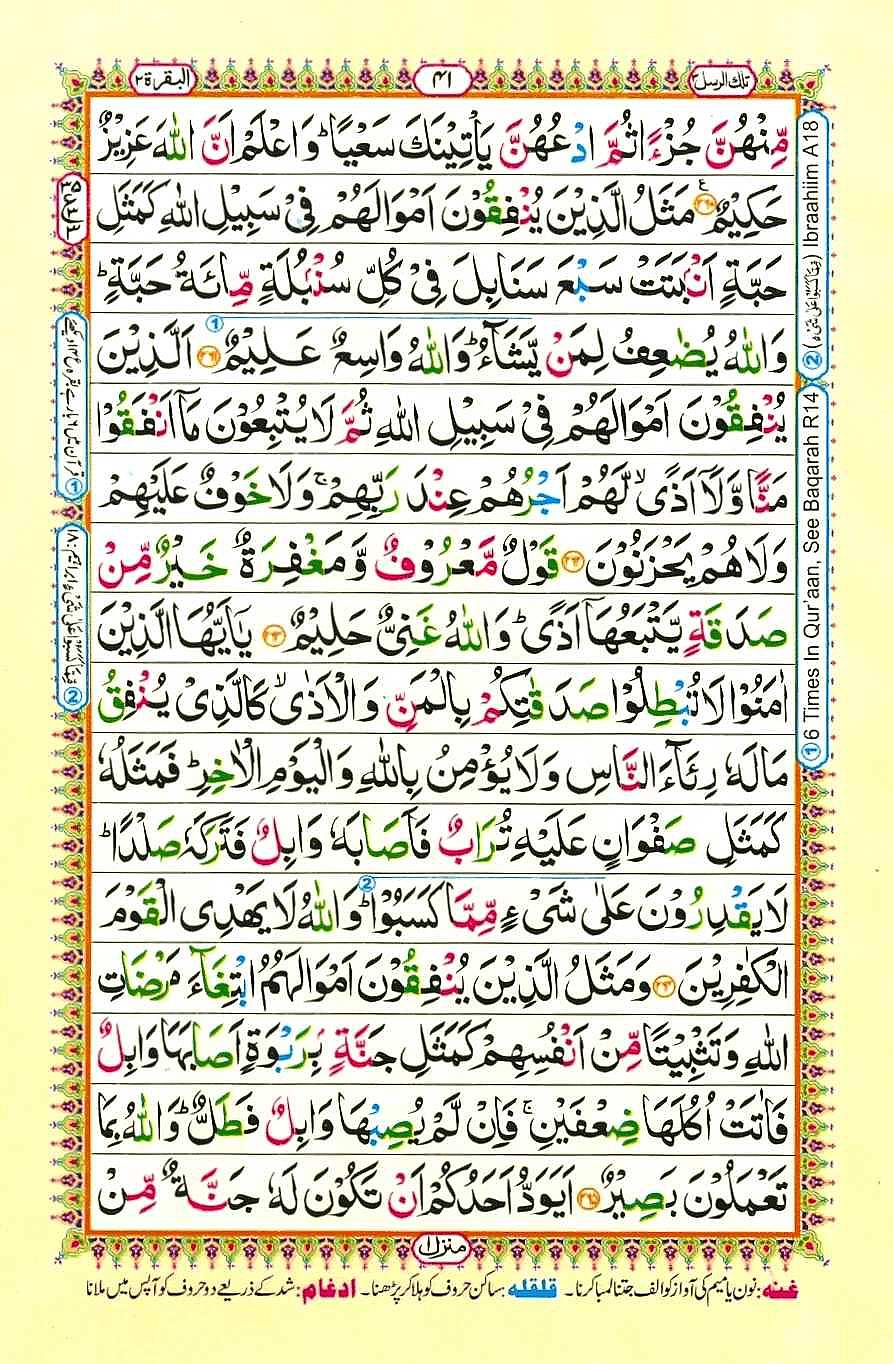 تلك الرسل ۳
۴۱
البقرة ۲
مِّنْهُنَّ جُزْءًا ثُمَّ ادْعُهُنَّ يَاْتِيْنَكَ سَعْيًا ؕ وَاعْلَمْ اَنَّ اللّٰهَ عَزِيْزٌ
حَكِيْمٌ ۟۲۶۰ ع مَثَلُ الَّذِيْنَ يُنْفِقُوْنَ اَمْوَالَهُمْ فِيْ سَبِيْلِ اللّٰهِ كَمَثَلِ
حَبَّةٍ اَنْۢبَتَتْ سَبْعَ سَنَابِلَ فِيْ كُلِّ سُنْۢبُلَةٍ مِّائَةُ حَبَّةٍ ؕ
وَاللّٰهُ يُضٰعِفُ لِمَنْ يَّشَآءُ ؕ① وَاللّٰهُ وَاسِعٌ عَلِيْمٌ ۟۲۶۱ اَلَّذِيْنَ
يُنْفِقُوْنَ اَمْوَالَهُمْ فِيْ سَبِيْلِ اللّٰهِ ثُمَّ لَا يُتْبِعُوْنَ مَاۤ اَنْفَقُوْا
مَنًّا وَّلَاۤ اَذًى ۙ لَّهُمْ اَجْرُهُمْ عِنْدَ رَبِّهِمْ ۚ وَلَا خَوْفٌ عَلَيْهِمْ
وَلَا هُمْ يَحْزَنُوْنَ ۟۲۶۲ قَوْلٌ مَّعْرُوْفٌ وَّمَغْفِرَةٌ خَيْرٌ مِّنْ
صَدَقَةٍ يَّتْبَعُهَاۤ اَذًى ؕ وَاللّٰهُ غَنِيٌّ حَلِيْمٌ ۟۲۶۳ يٰۤاَيُّهَا الَّذِيْنَ
اٰمَنُوْا لَا تُبْطِلُوْا صَدَقٰتِكُمْ بِالْمَنِّ وَالْاَذٰى ۙ كَالَّذِيْ يُنْفِقُ
مَالَهٗ رِئَآءَ النَّاسِ وَلَا يُؤْمِنُ بِاللّٰهِ وَالْيَوْمِ الْاٰخِرِ ؕ فَمَثَلُهٗ
كَمَثَلِ صَفْوَانٍ عَلَيْهِ تُرَابٌ فَاَصَابَهٗ وَابِلٌ فَتَرَكَهٗ صَلْدًا ؕ
لَا يَقْدِرُوْنَ عَلٰى شَيْءٍ مِّمَّا كَسَبُوْا ؕ② وَاللّٰهُ لَا يَهْدِي الْقَوْمَ
الْكٰفِرِيْنَ ۟۲۶۴ وَمَثَلُ الَّذِيْنَ يُنْفِقُوْنَ اَمْوَالَهُمُ ابْتِغَآءَ مَرْضَاتِ
اللّٰهِ وَتَثْبِيْتًا مِّنْ اَنْفُسِهِمْ كَمَثَلِ جَنَّةٍۭ بِرَبْوَةٍ اَصَابَهَا وَابِلٌ
فَاٰتَتْ اُكُلَهَا ضِعْفَيْنِ ۚ فَاِنْ لَّمْ يُصِبْهَا وَابِلٌ فَطَلٌّ ؕ وَاللّٰهُ بِمَا
تَعْمَلُوْنَ بَصِيْرٌ ۟۲۶۵ اَيَوَدُّ اَحَدُكُمْ اَنْ تَكُوْنَ لَهٗ جَنَّةٌ مِّنْ
② (مِمَّا كَسَبُوْا عَلٰى شَيْءٍ) Ibraahiim A18
① 6 Times In Qur'aan, See Baqarah R14
② مِمَّا كَسَبُوْا عَلٰى شَيْءٍ، ابراہیم: ۱۸
منزل ۱
غنه: نون یا میم کی آواز کو الف جتنا لمبا کرنا۔ قلقله: ساکن حروف کو ہلا کر پڑھنا۔ ادغام: شد کے ذریعے دو حروف کو آپس میں ملانا